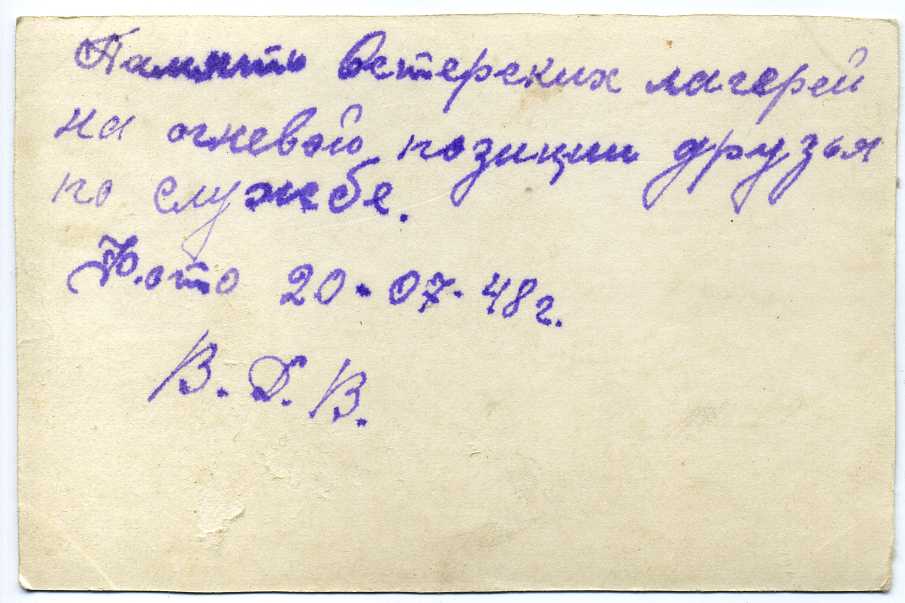 Память Остерских лагерей
на огневой позиции друзья
по службе.
Фото 20-07-48г.
В. Д. В.